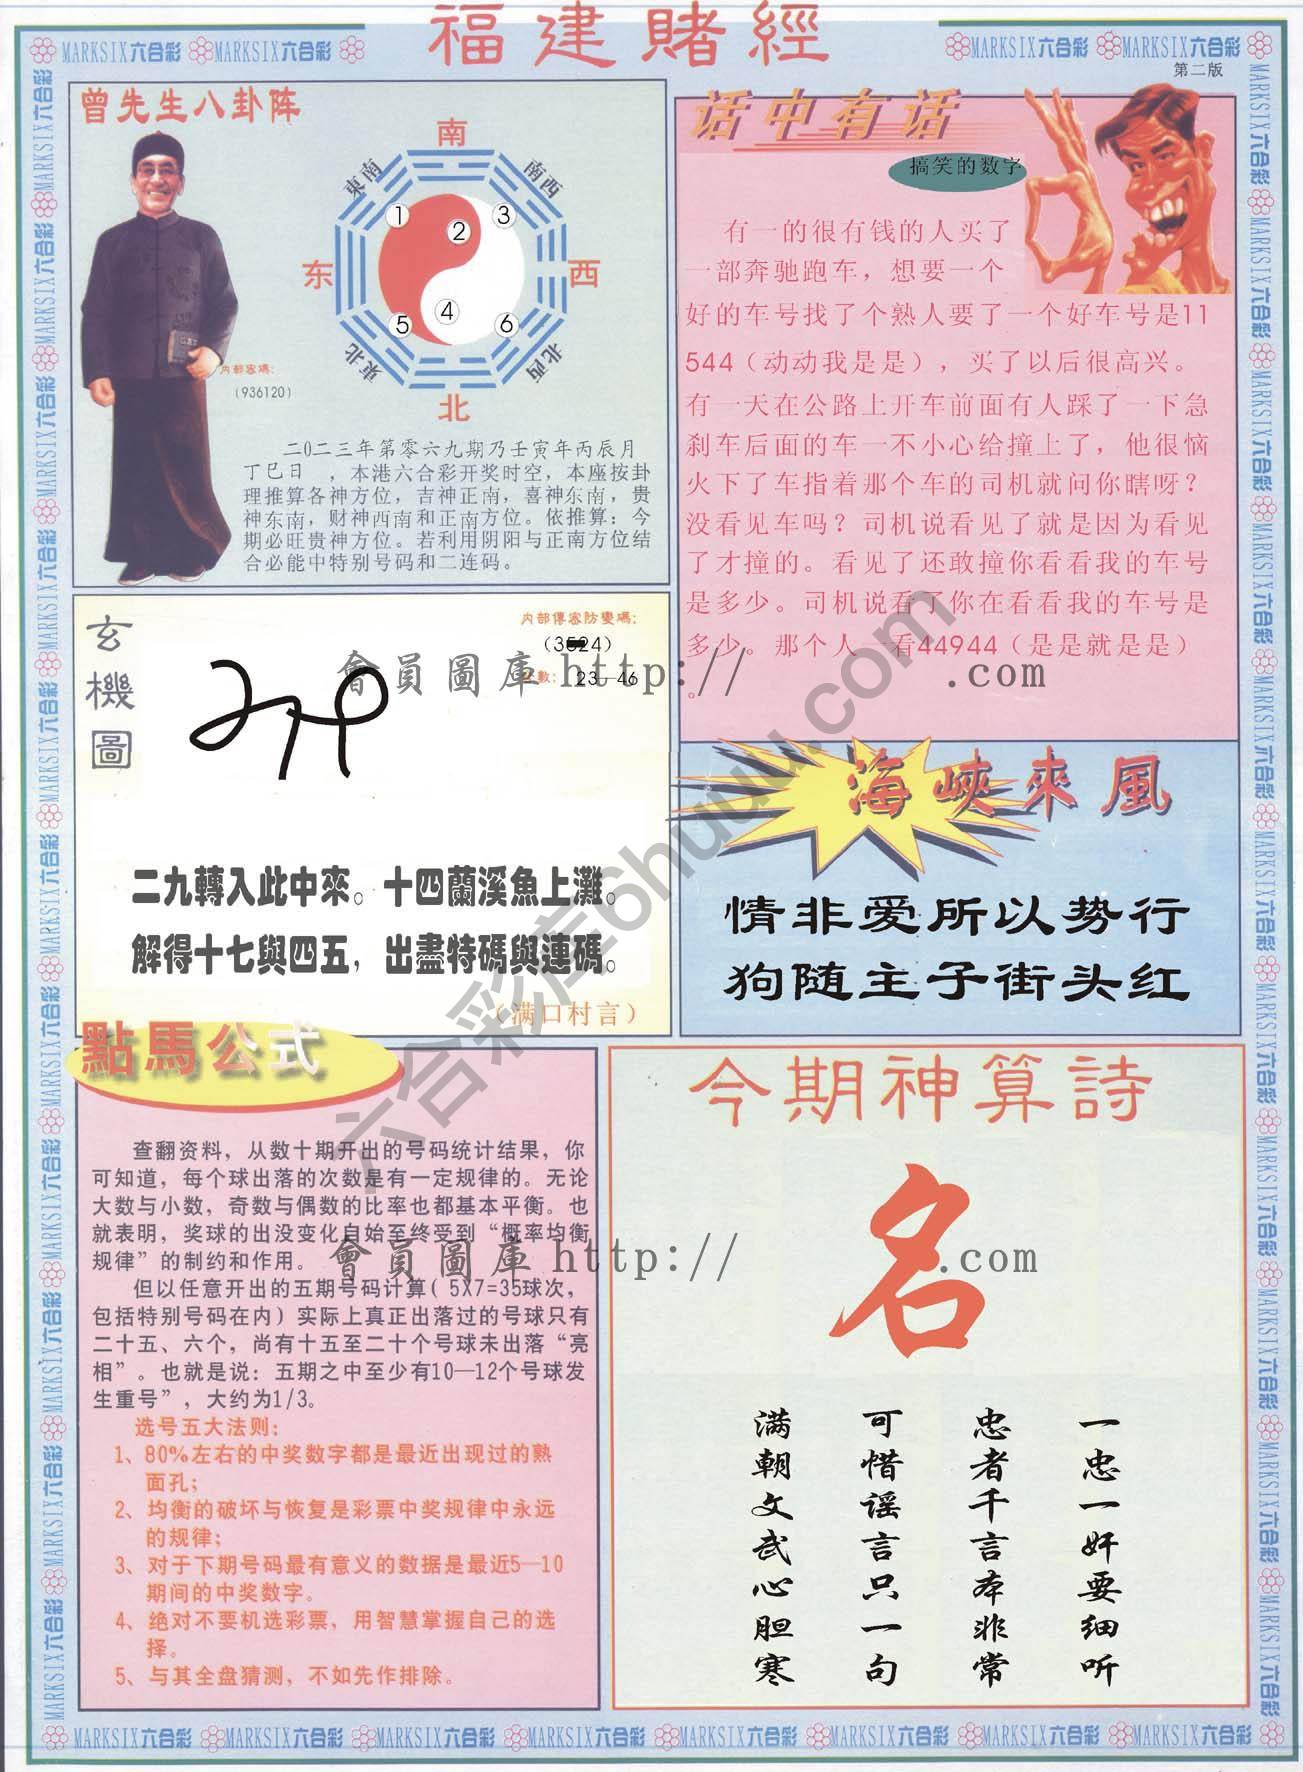 福建賭經
MARKSIX六合彩 MARKSIX六合彩
MARKSIX六合彩 MARKSIX六合彩
第二版
曾先生八卦阵
南
東南
南西
1
2
3
东
西
4
5
6
東北
北西
北
内部密碼:
(936120)
二0二三年第零六九期乃壬寅年丙辰月
丁巳日 ,本港六合彩开奖时空,本座按卦
理推算各神方位,吉神正南,喜神东南,贵
神东南,财神西南和正南方位。依推算:今
期必旺贵神方位。若利用阴阳与正南方位结
合必能中特别号码和二连码。
话中有话
搞笑的数字
有一的很有钱的人买了
一部奔驰跑车,想要一个
好的车号找了个熟人要了一个好车号是11
544(动动我是是),买了以后很高兴。
有一天在公路上开车前面有人踩了一下急
刹车后面的车一不小心给撞上了,他很恼
火下了车指着那个车的司机就问你瞎呀?
没看见车吗?司机说看见了就是因为看见
了才撞的。看见了还敢撞你看看我的车号
是多少。司机说看了你在看看我的车号是
多少。那个人一看44944(是是就是是)
。
玄機圖
内部傳密防變碼:
23—46
會員圖庫 http:// .com
二九轉入此中來。十四蘭溪魚上灘。
解得十七與四五,出盡特碼與連碼。
(满口村言)
海峽來風
情非爱所以势行
狗随主子街头红
六合彩库6huuu.com
點馬公式
查翻资料,从数十期开出的号码统计结果,你
可知道,每个球出落的次数是有一定规律的。无论
大数与小数,奇数与偶数的比率也都基本平衡。也
就表明,奖球的出没变化自始至终受到“概率均衡
规律”的制约和作用。
但以任意开出的五期号码计算( 5X7=35球次,
包括特别号码在内)实际上真正出落过的号球只有
二十五、六个,尚有十五至二十个号球未出落“亮
相”。也就是说:五期之中至少有10—12个号球发
生重号”,大约为1/3。
选号五大法则:
1、80%左右的中奖数字都是最近出现过的熟
面孔;
2、均衡的破坏与恢复是彩票中奖规律中永远
的规律;
3、对于下期号码最有意义的数据是最近5—10
期间的中奖数字。
4、绝对不要机选彩票,用智慧掌握自己的选
择。
5、与其全盘猜测,不如先作排除。
今期神算詩
名
會員圖庫 http:// .com
一忠一奸要细听
忠者千言本非常
可惜谣言只一句
满朝文武心胆寒
MARKSIX六合彩 MARKSIX六合彩 MARKSIX六合彩 MARKSIX六合彩 MARKSIX六合彩 MARKSIX六合彩 MARKSIX六合彩 MARKSIX六合彩